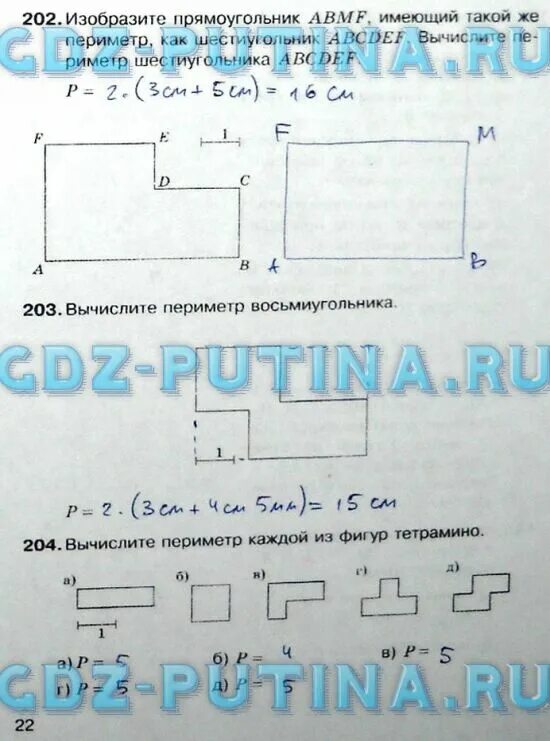 202. Изобразите прямоугольник ABMF, имеющий такой же
периметр, как шестиугольник ABCDEF. Вычислите пе-
риметр шестиугольника ABCDEF.
GDZ-PUTINA.RU
P = 2·(3см + 5см) = 16 см
F E 1 F M
D C
A B A B
GDZ-PUTINA.RU
203. Вычислите периметр восьмиугольника.
GDZ-PUTINA.RU
1
P = 2·(3см + 4см 5мм) = 15 см
GDZ-PUTINA.RU
204. Вычислите периметр каждой из фигур тетрамино.
а) б) в) г) д)
1
а) P = 5 б) P = 4 в) P = 5
г) P = 5 д) P = 5
GDZ-PUTINA.RU
22